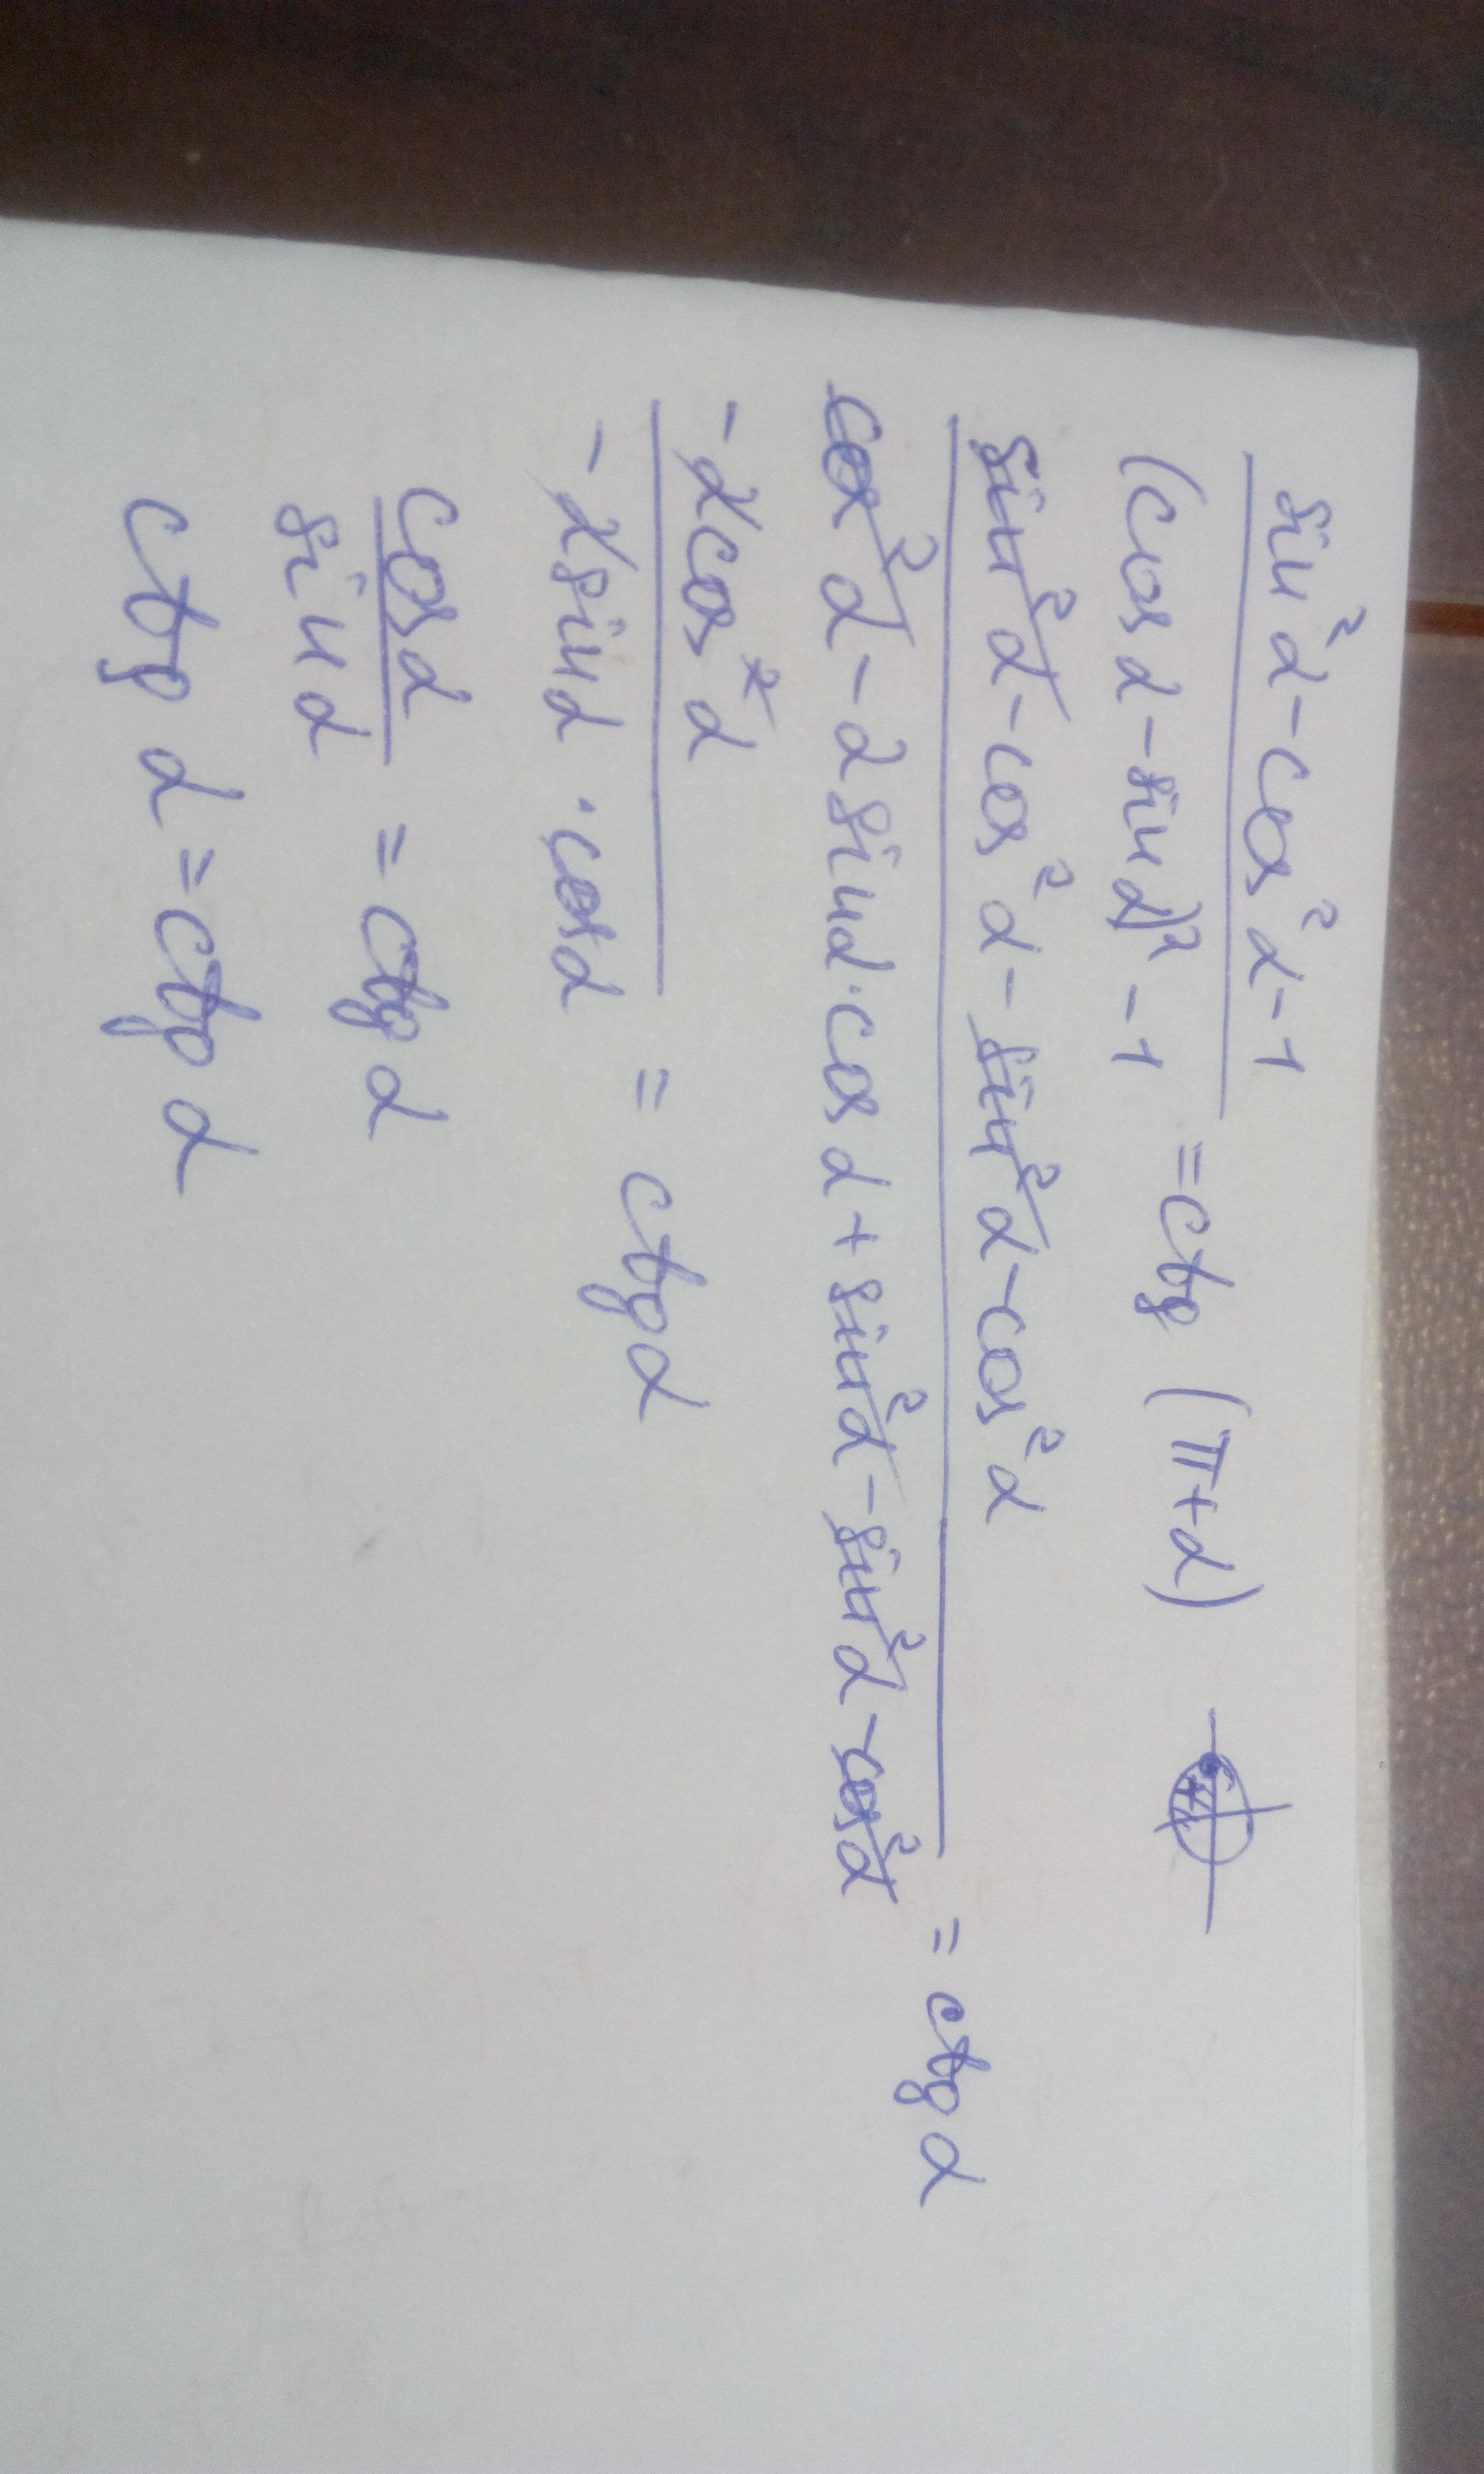 sin²α-cos²α-1
(cosα-sinα)²-1 =ctg (π+α)
sin²α-cos²α-sin²α-cos²α
cos²α-2sinα·cosα+sin²α-sin²α-cos²α =ctgα
-2cos²α
-2sinα·cosα =ctgα
cosα
sinα =ctgα
ctgα=ctgα